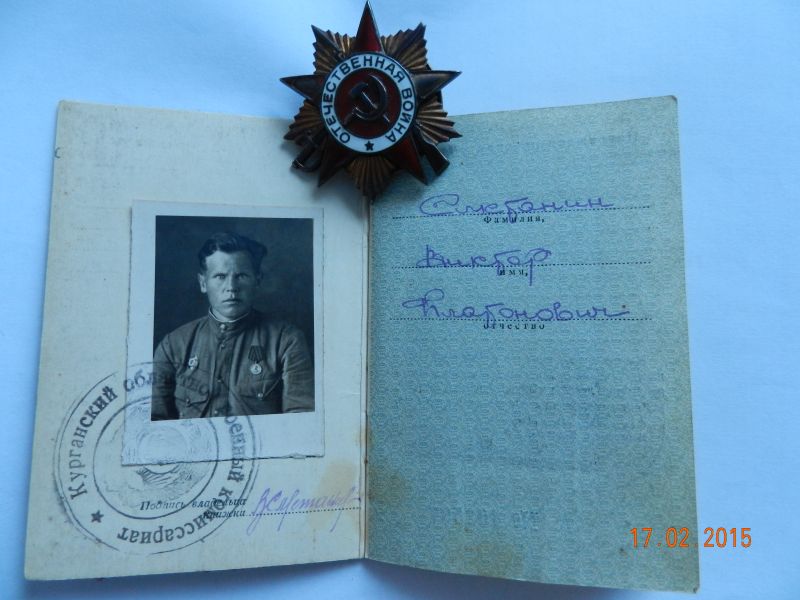 ОТЕЧЕСТВЕННАЯ ВОЙНА
фамилия,
Виктор
имя,
Платонович
отчество
Курганский областной военный комиссариат
Подпись владельца
книжки
17.02.2015